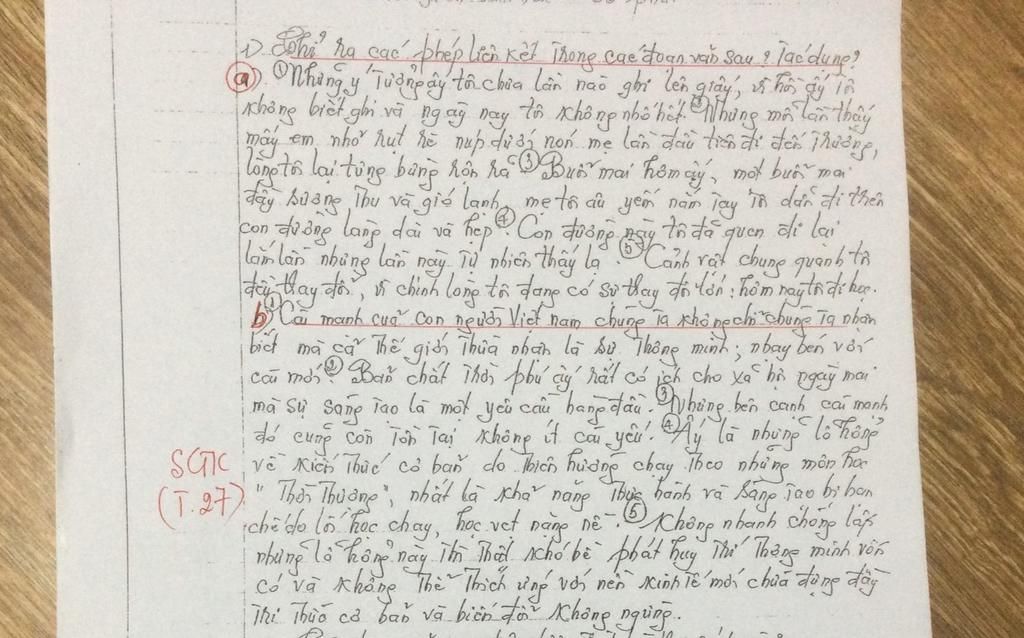 1) Chỉ ra các phép liên kết trong các đoạn văn sau? Tác dụng?
a) ① Những ý tưởng ấy tôi chưa lần nào ghi lên giấy, vì hồi ấy tôi
không biết ghi và ngày nay tôi không nhớ hết. ② Nhưng mỗi lần thấy
mấy em nhỏ rụt rè núp dưới nón mẹ lần đầu tiên đi đến trường,
lòng tôi lại tưng bừng rộn rã ③ Buổi mai hôm ấy, một buổi mai
đầy sương thu và gió lạnh, mẹ tôi âu yếm nắm tay tôi dẫn đi trên
con đường làng dài và hẹp ④. Con đường này tôi đã quen đi lại
lắm lần nhưng lần này tự nhiên thấy lạ. ⑤ Cảnh vật chung quanh tôi
đều thay đổi, vì chính lòng tôi đang có sự thay đổi lớn: hôm nay tôi đi học.
b) ① Cái mạnh của con người Việt Nam chúng ta không chỉ chúng ta nhận
biết mà cả thế giới thừa nhận là sự thông minh, nhạy bén với
cái mới ② Bản chất trời phú ấy rất có ích cho xã hội ngày mai
mà sự sáng tạo là một yêu cầu hàng đầu. ③ Nhưng bên cạnh cái mạnh
đó cũng còn tồn tại không ít cái yếu. ④ Ấy là những lỗ hổng
về kiến thức cơ bản do thiên hướng chạy theo những môn học
"Thời thượng", nhất là khả năng thực hành và sáng tạo bị hạn
chế do lối học chay, học vẹt nặng nề. ⑤ Không nhanh chóng lấp
những lỗ hổng này thì thật khó bề phát huy trí thông minh vốn
có và không thể thích ứng với nền kinh tế mới chứa đựng đầy
tri thức cơ bản và biến đổi không ngừng.
SGK
(T.27)